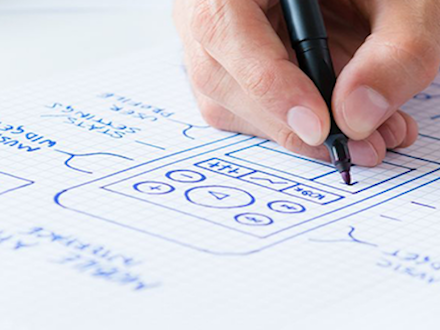 USER
PROFILE
STATS/
SETTINGS
MUSIC
WIDGET
MOBILE
INTERFACE